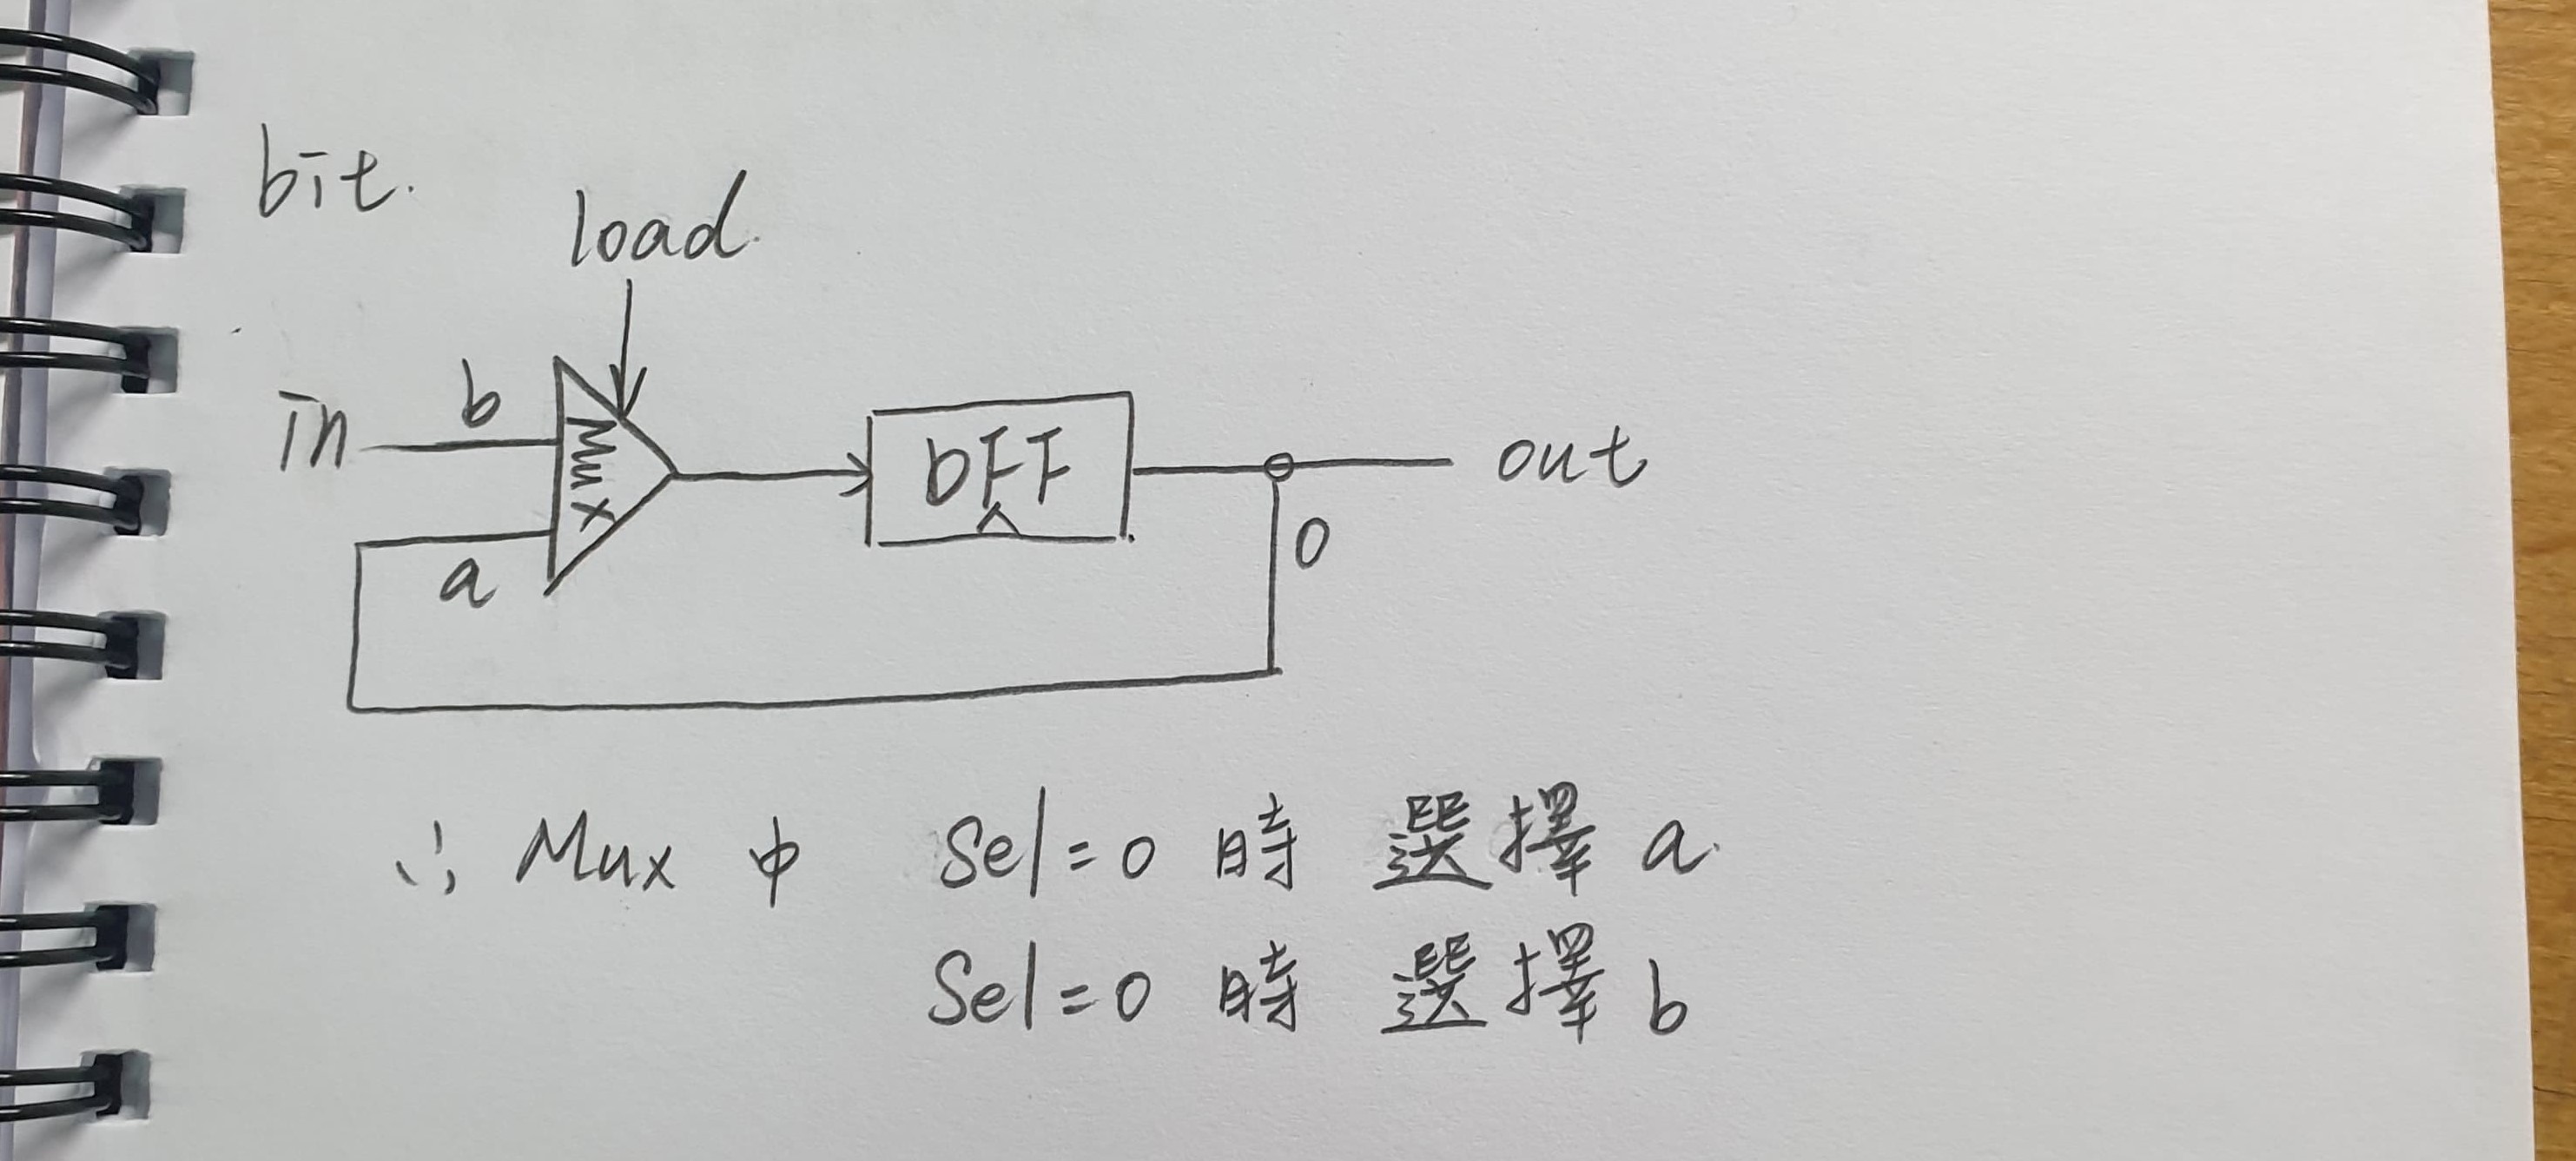 bit.
load.
in
b
Mux
DFF
out
a
0
∴ Mux 中 Sel=0 時 選擇 a.
Sel=0 時 選擇 b